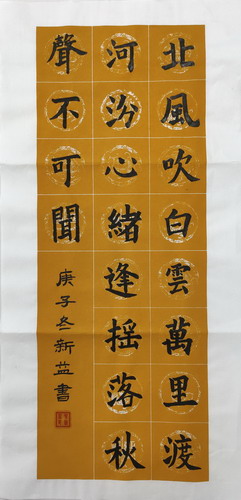 北風吹白雲萬里渡
河汾心緒逢摇落秋
聲不可聞
庚子冬新益書